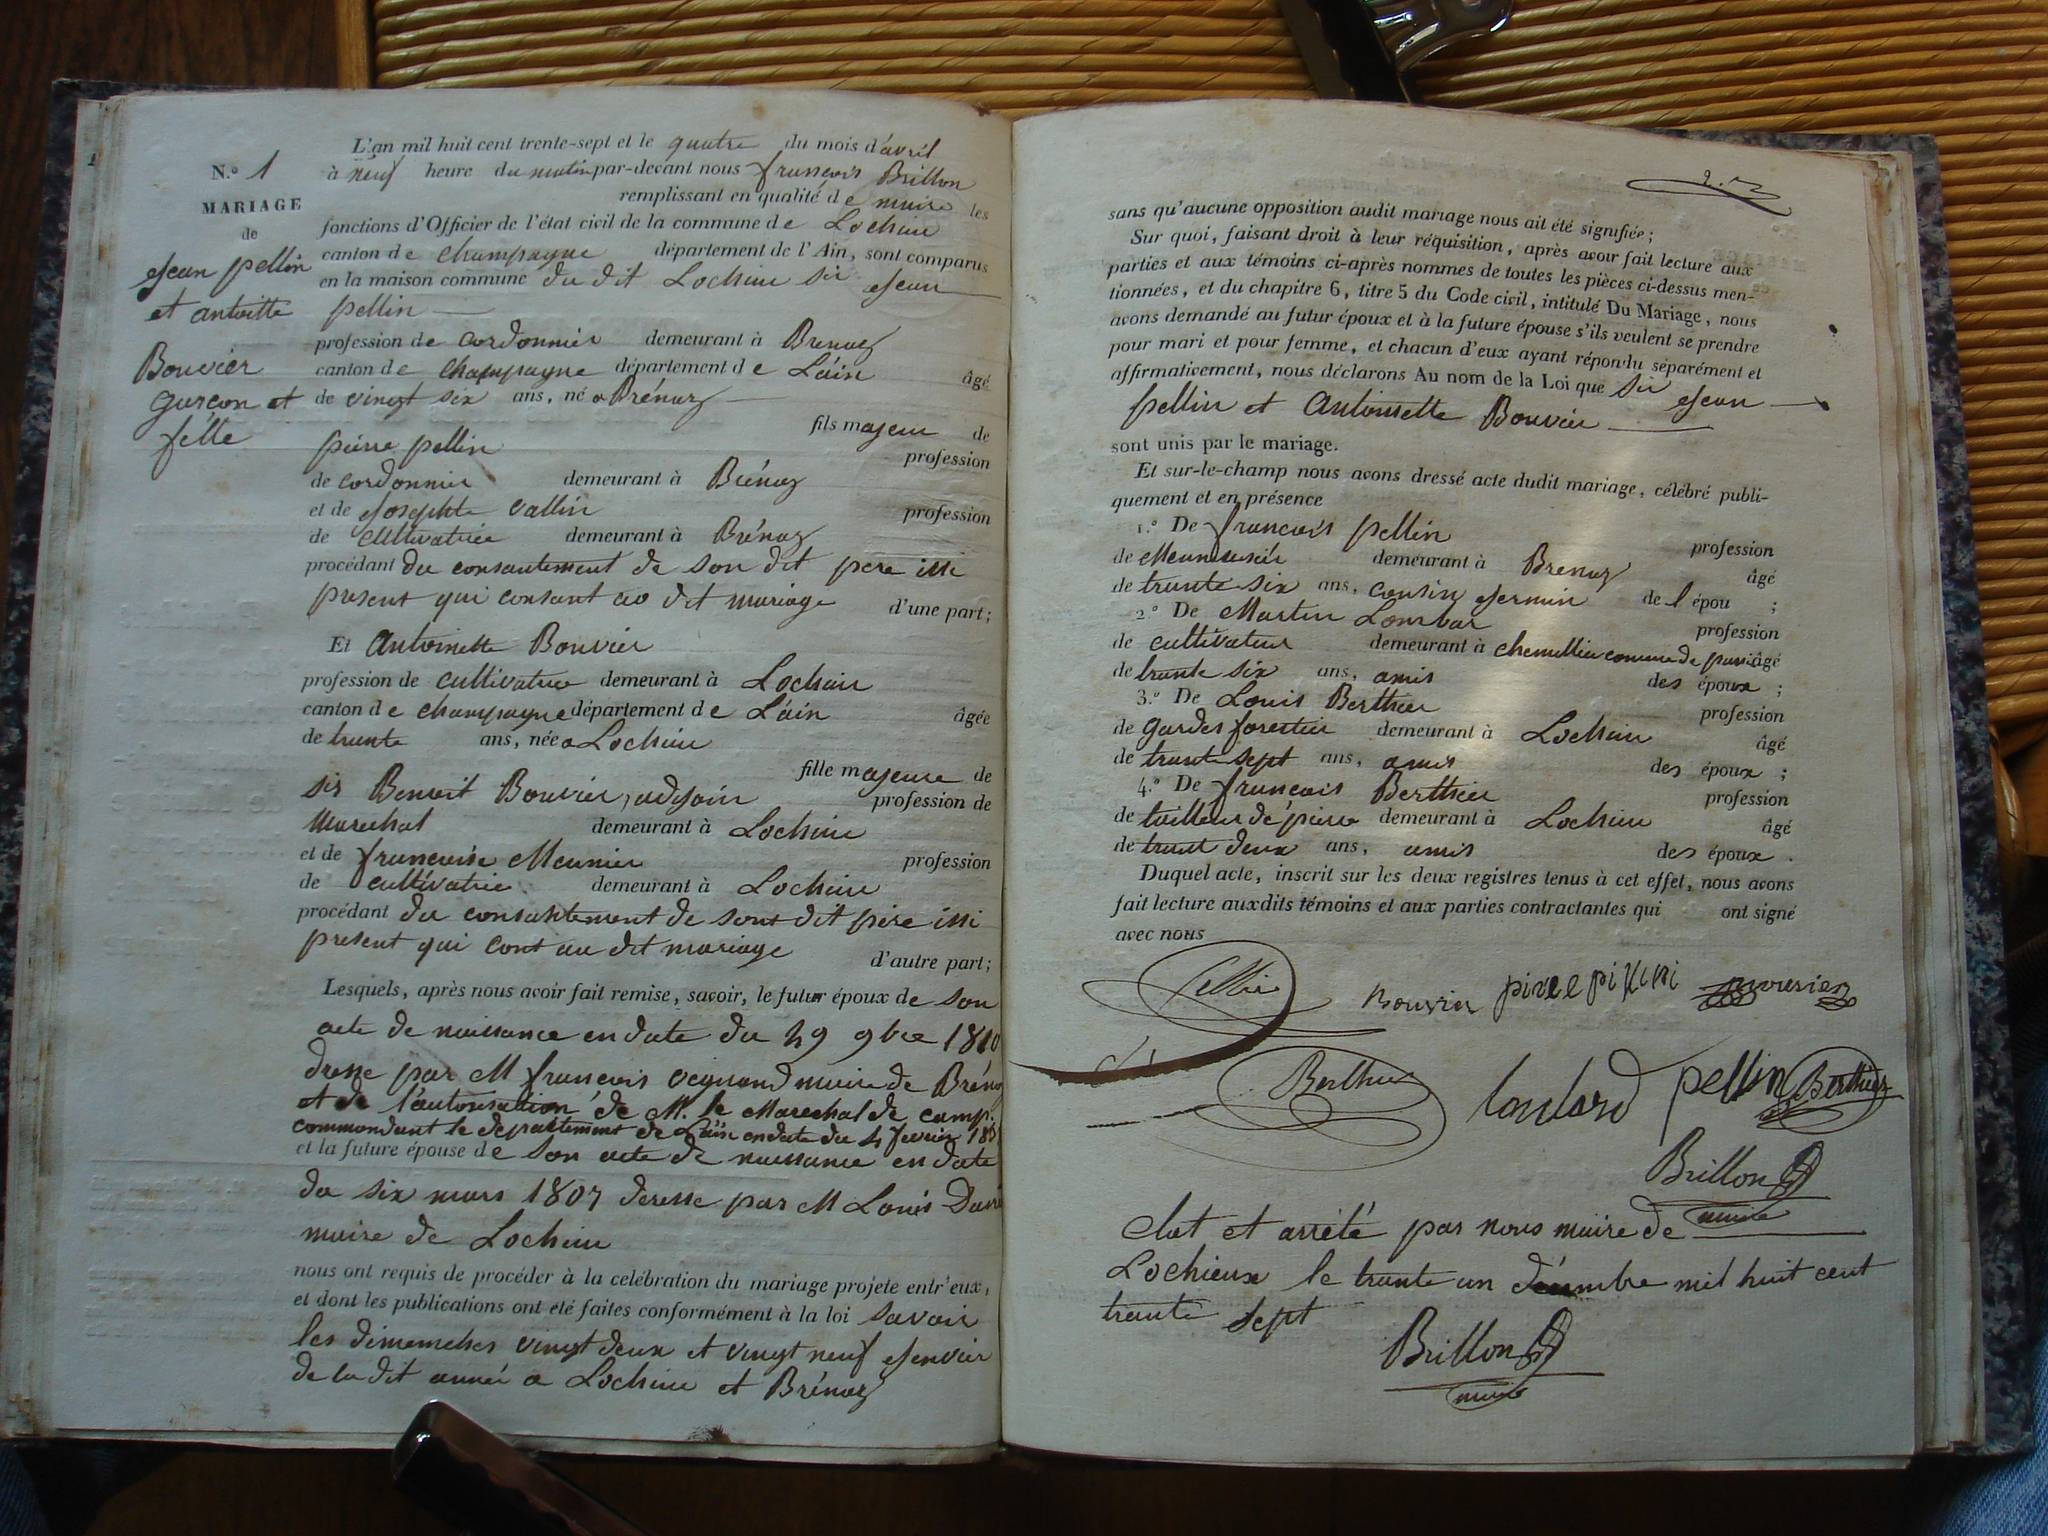 1
N.º 1
MARIAGE
de
Jean pellin
et antoitte
Bouvier
garçon et
fille
L'an mil huit cent trente-sept et le quatre du mois d'avril
à neuf heure du matin par-devant nous françois Brillon
remplissant en qualité de maire les
fonctions d'Officier de l'état civil de la commune de Lochieu
canton de champagne département de l'Ain, sont comparus
en la maison commune du dit Lochieu sir Jean
pellin
profession de cordonnier demeurant à Brenaz
canton de champagne département de Láin âgé
de vingt six ans, né a Brénaz
fils majeur de
pierre pellin profession
de cordonnier demeurant à Brénaz
et de Josephte vallin profession
de cultivatrice demeurant à Brénaz
procédant du consantement de son dit pere issi
present qui consant au dit mariage d'une part;
Et Antoinette Bouvier
profession de cultivatrice demeurant à Lochieu
canton de champagne département de Láin âgée
de trante ans, née a Lochieu
fille majeure de
sir Benoit Bouvier, adjoin profession de
Marechal demeurant à Lochieu
et de francoise Meunier profession
de cultivatrie demeurant à Lochieu
procédant du consantement de sont dit père issi
present qui cont au dit mariage d'autre part;
Lesquels, après nous avoir fait remise, savoir, le futur époux de son
acte de naissance en date du 29 9bre 1810
dresse par M francois maire de Brénaz
et de l'autorisation de M. le Marechal de camp.
commandant le département de Láin en date du 4 fevrier
et la future épouse de son acte de naissance en date
du six mars 1807 deresse par M Louis
maire de Lochieu
nous ont requis de procéder à la celébration du mariage projete entr'eux,
et dont les publications ont été faites conformément à la loi savoir
les dimemches vingt deux et vingt neuf Jenvier
de la dit année a Lochieu et Brénaz
sans qu'aucune opposition audit mariage nous ait été signifiée;
Sur quoi, faisant droit à leur réquisition, après avoir fait lecture aux
parties et aux témoins ci-après nommes de toutes les pièces ci-dessus men-
tionnées, et du chapitre 6, titre 5 du Code civil, intitulé Du Mariage, nous
avons demandé au futur époux et à la future épouse s'ils veulent se prendre
pour mari et pour femme, et chacun d'eux ayant répondu séparément et
affirmativement, nous déclarons Au nom de la Loi que sir Jean
pellin et Antoinette Bouvier
sont unis par le mariage.
Et sur-le-champ nous avons dressé acte dudit mariage, célébré publi-
quement et en présence
1.º De francois pellin profession
de Menuisier demeurant à Brenaz âgé
de trante six ans, cousin Jermin de l épou ;
2.º De Martin Lombar profession
de cultivateur demeurant à chemillieu comune de âgé
de trante six ans, amis des époux ;
3.º De Louis Berthier profession
de gardes forestier demeurant à Lochieu âgé
de trante sept ans, amis des époux ;
4.º De francois Berthier profession
de tailleur dé pierre demeurant à Lochieu âgé
de trant deux ans, amis des époux .
Duquel acte, inscrit sur les deux registres tenus à cet effet, nous avons
fait lecture auxdits témoins et aux parties contractantes qui ont signé
avec nous
Pellin Bouvier
Berthier pellin Berthier
Brillon
maire
Clot et arrété par nous maire de
Lochieux le trante un décembre mil huit cent
trante sept
Brillon
maire